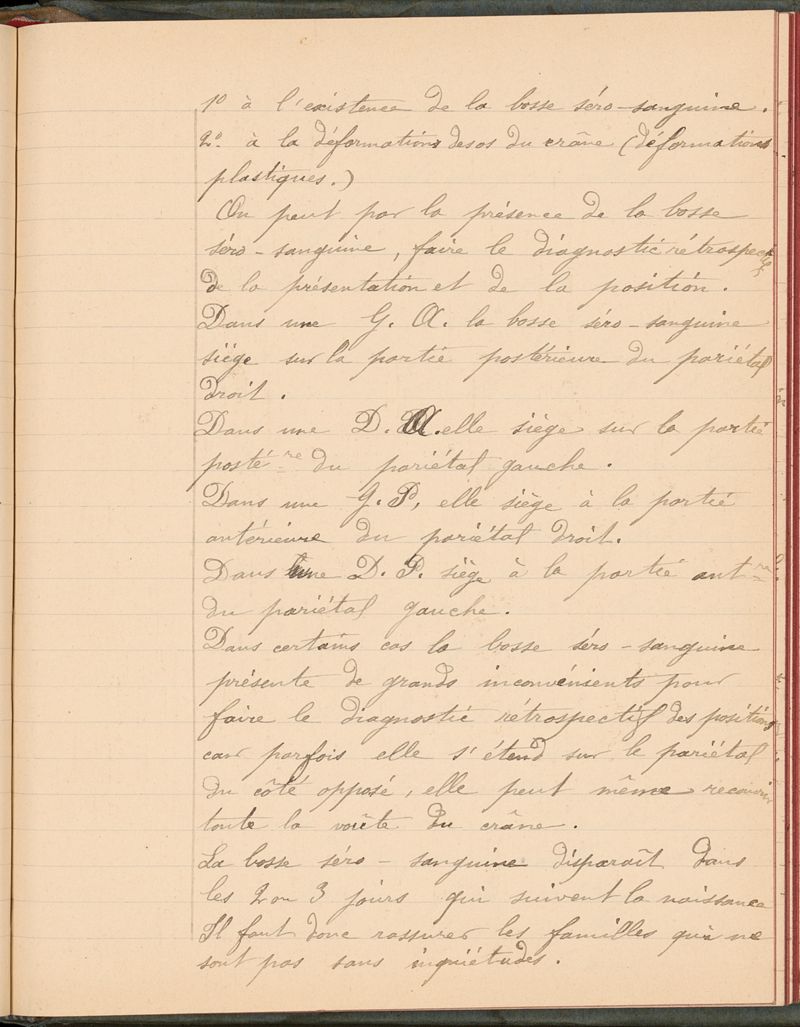 1º à l'existence de la bosse séro-sanguine.
2º à la déformations des os du crâne (déformations
plastiques.)
On peut par la présence de la bosse
séro-sanguine, faire le diagnostic rétrospectif
de la présentation et de la position.
Dans une G. A. la bosse séro-sanguine
siège sur la partie postérieure du pariétal
droit.
Dans une D. A. elle siège sur la partie
posté.re du pariétal gauche.
Dans une G. P, elle siège à la partie
antérieure du pariétal droit.
Dans une D. P. siège à la partie antre
du pariétal gauche.
Dans certains cas la bosse séro-sanguine
présente de grands inconvénients pour
faire le diagnostic rétrospectif des positions
car parfois elle s'étend sur le pariétal
du côté opposé, elle peut même recouvrir
toute la voûte du crâne.
La bosse séro-sanguine disparaît dans
les 2 ou 3 jours qui suivent la naissance
Il faut donc rassurer les familles qui ne
sont pas sans inquiétudes.